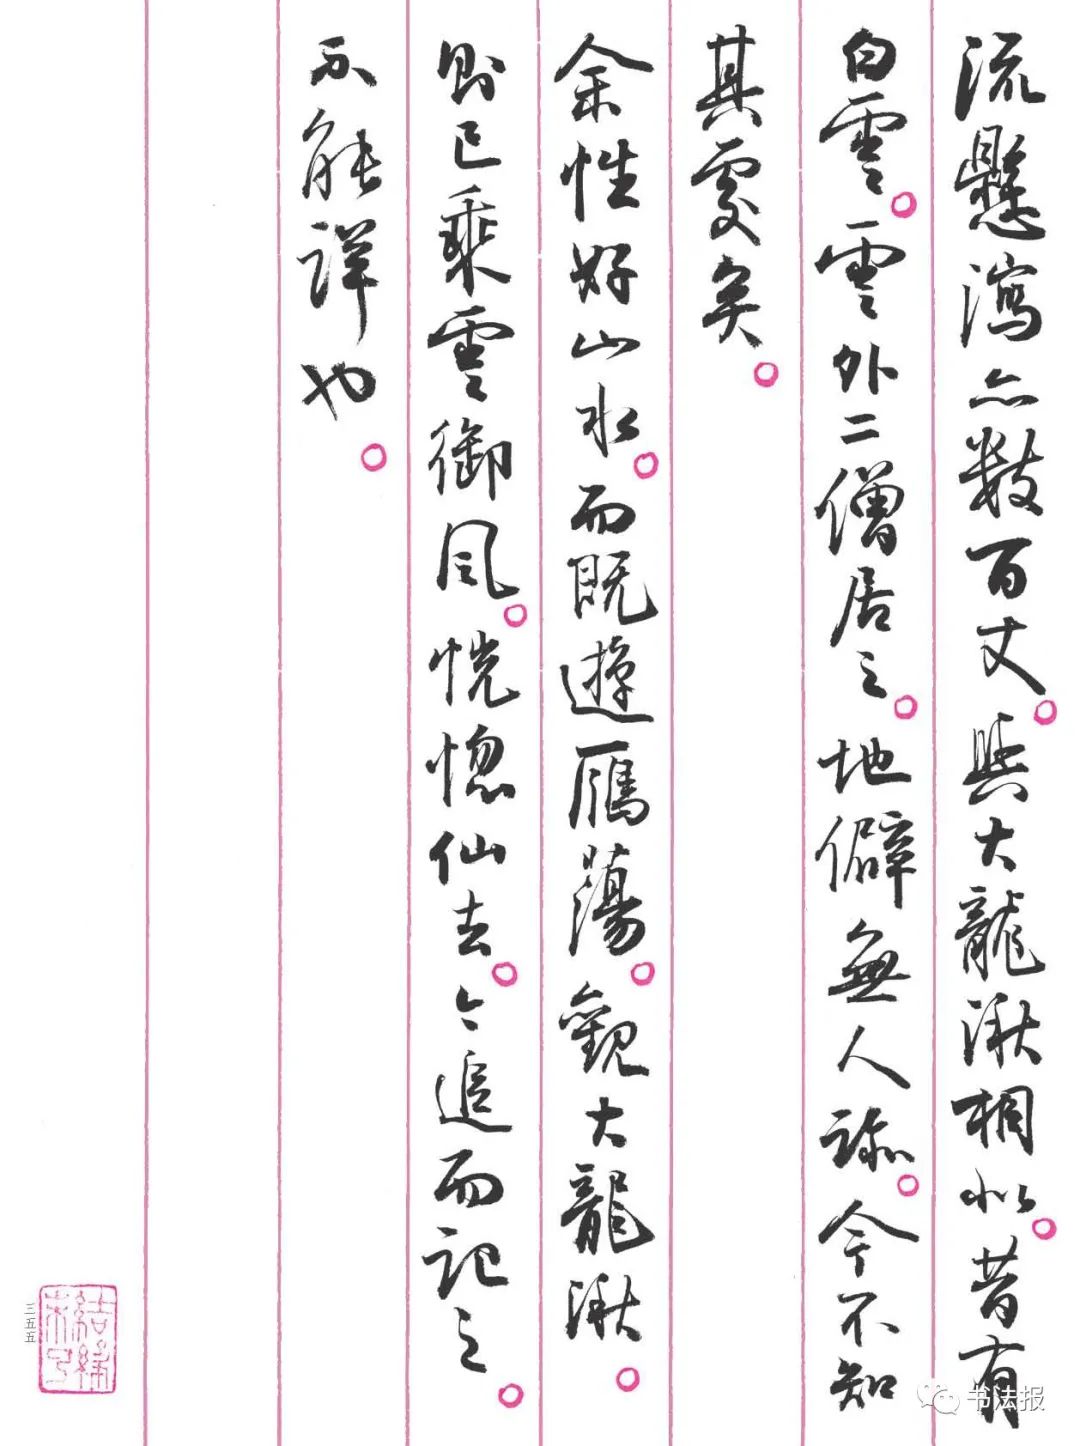 流懸瀉亦數百丈。與大龍湫相似。昔有
白雲。雲外二僧居之。地僻無人跡。今不知
其處矣。
余性好山水。而既遊鴈蕩。觀大龍湫。
則已乘雲御風。恍惚仙去。今追而記之。
不能詳也。
結緣未了
三五五
书法报